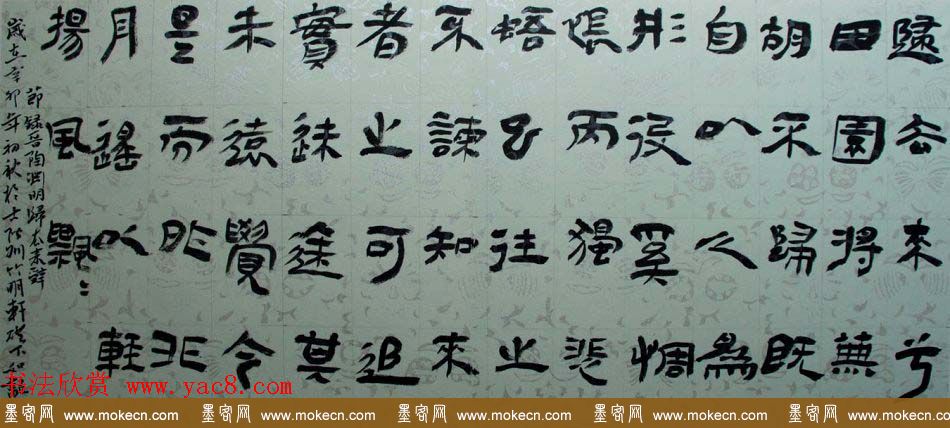 歸去来兮
田園将蕪
胡不歸既
自以心為
形役奚惆
悵而獨悲
悟已往之
不諫知來
者之可追
實迷途其
未遠覺今
是而昨非
舟遥以軽
揚風飄〻
節録晋陶淵明歸去来辞
歲在辛卯年初秋於 州竹明軒硯下
书法欣赏 www.yac8.com
墨客网 www.mokecn.com 墨客网 www.mokecn.com 墨客网 www.mokecn.com 墨客网 www.mokecn.com 墨客网 www.mokecn.com